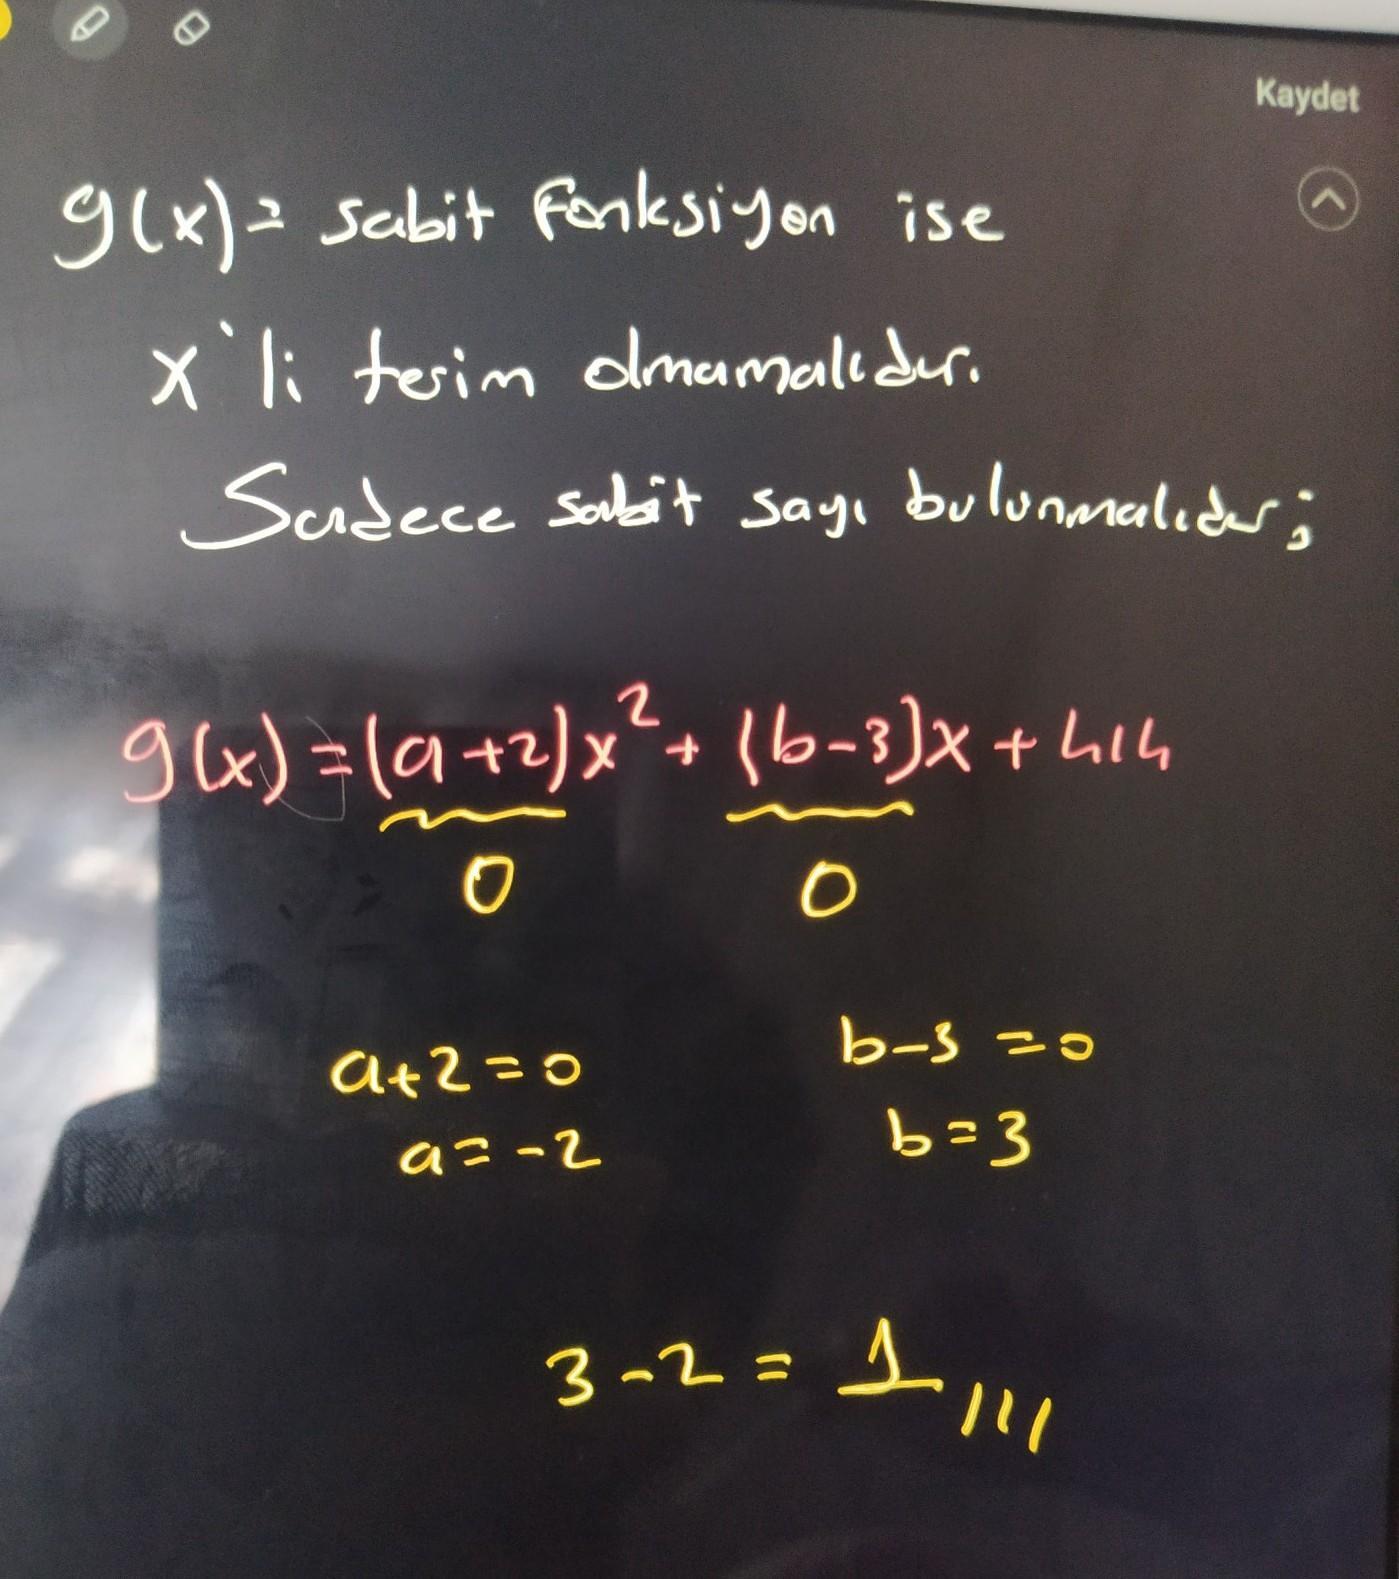 Kaydet
g(x)= sabit fonksiyon ise
x'li terim olmamalıdır.
Sadece sabit sayı bulunmalıdır;
g(x)=(a+2)x²+(b-3)x+414
0 0
a+2=0 b-3=0
a=-2 b=3
3-2=1